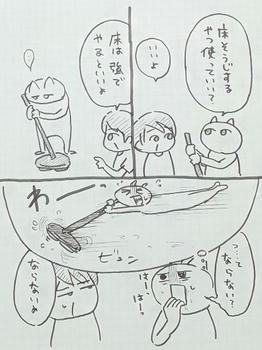 床そうじする
やつ使っていい？
いいよ
床は強で
やるといいよ
わー
ビュン
って
ならない？
はーはー。
ならないよ